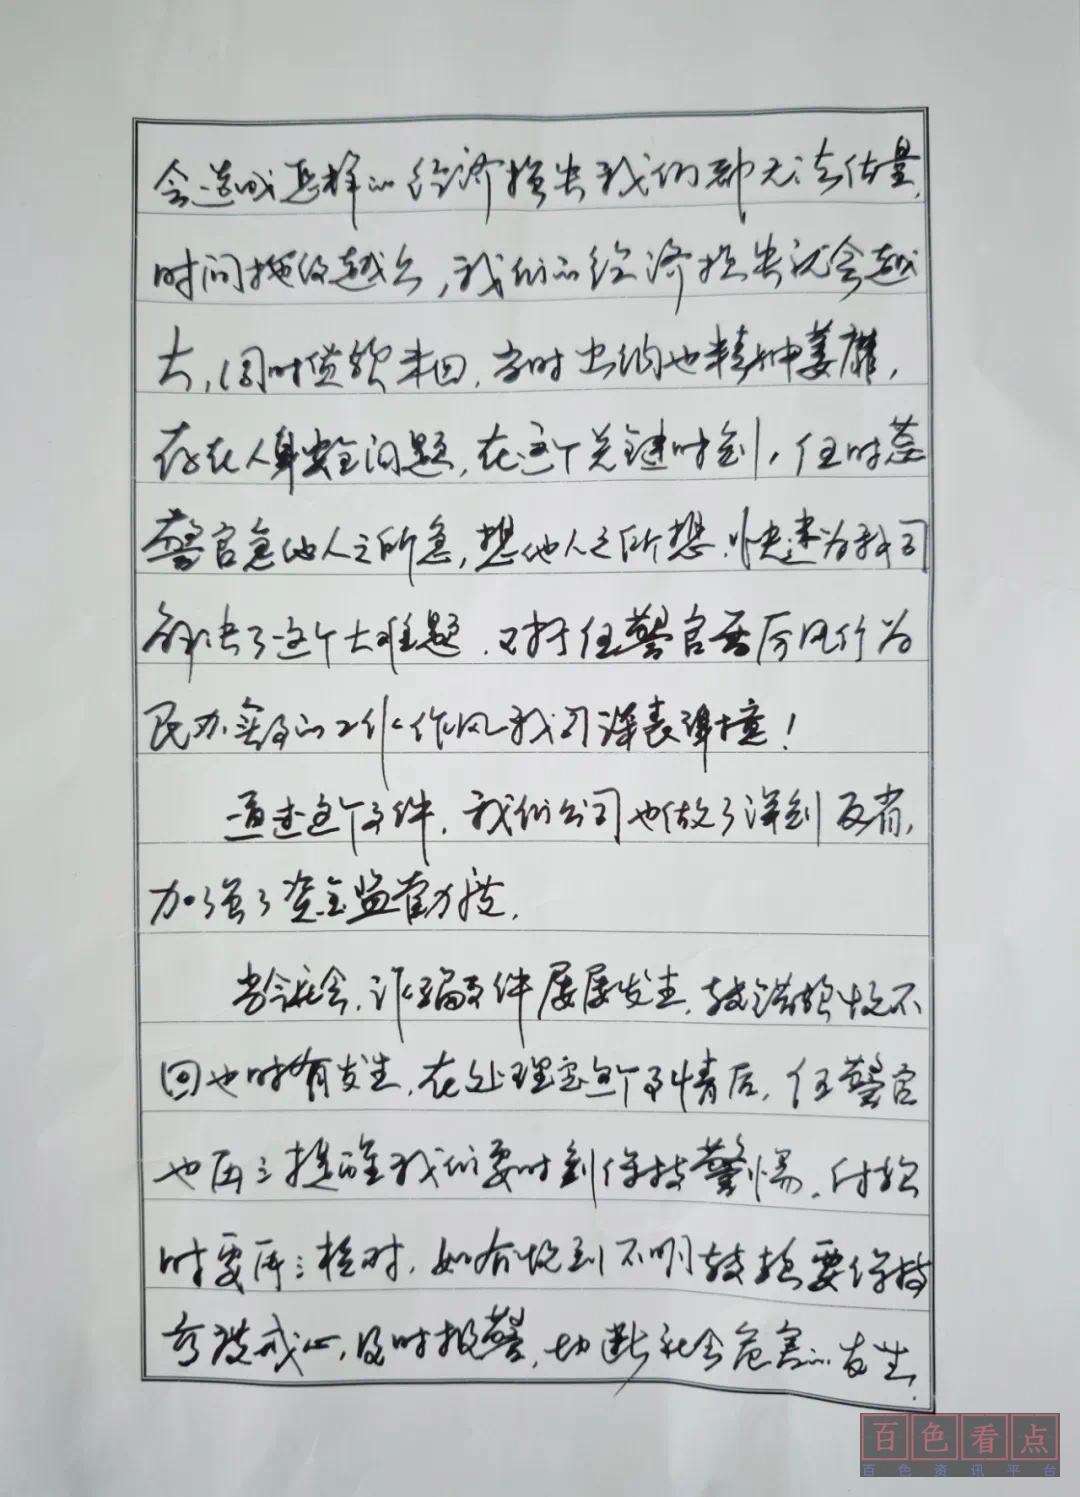 会造成怎样的经济损失我们都无法估量，
时间拖得越久，我们的经济损失就会越
大，同时货款未回，当时出纳也精神萎靡，
存在人身安全问题，在这个关键时刻，任时蕊
警官急他人之所急，想他人之所想，快速为我司
解决了这个大难题，对于任警官雷厉风行为
民办实事的工作作风我司深表钟意！
通过这个事件，我们公司也做了深刻反省，
加强了资金监管力度，
当今社会，诈骗事件屡屡发生，转错款收不
回也时有发生，在处理完这个事情后，任警官
也再三提醒我们要时刻保持警惕，付款
时要再三核对，如有收到不明转款要保持
戒心，及时报警，切断社会危害的发生，
百色看点
百色资讯平台